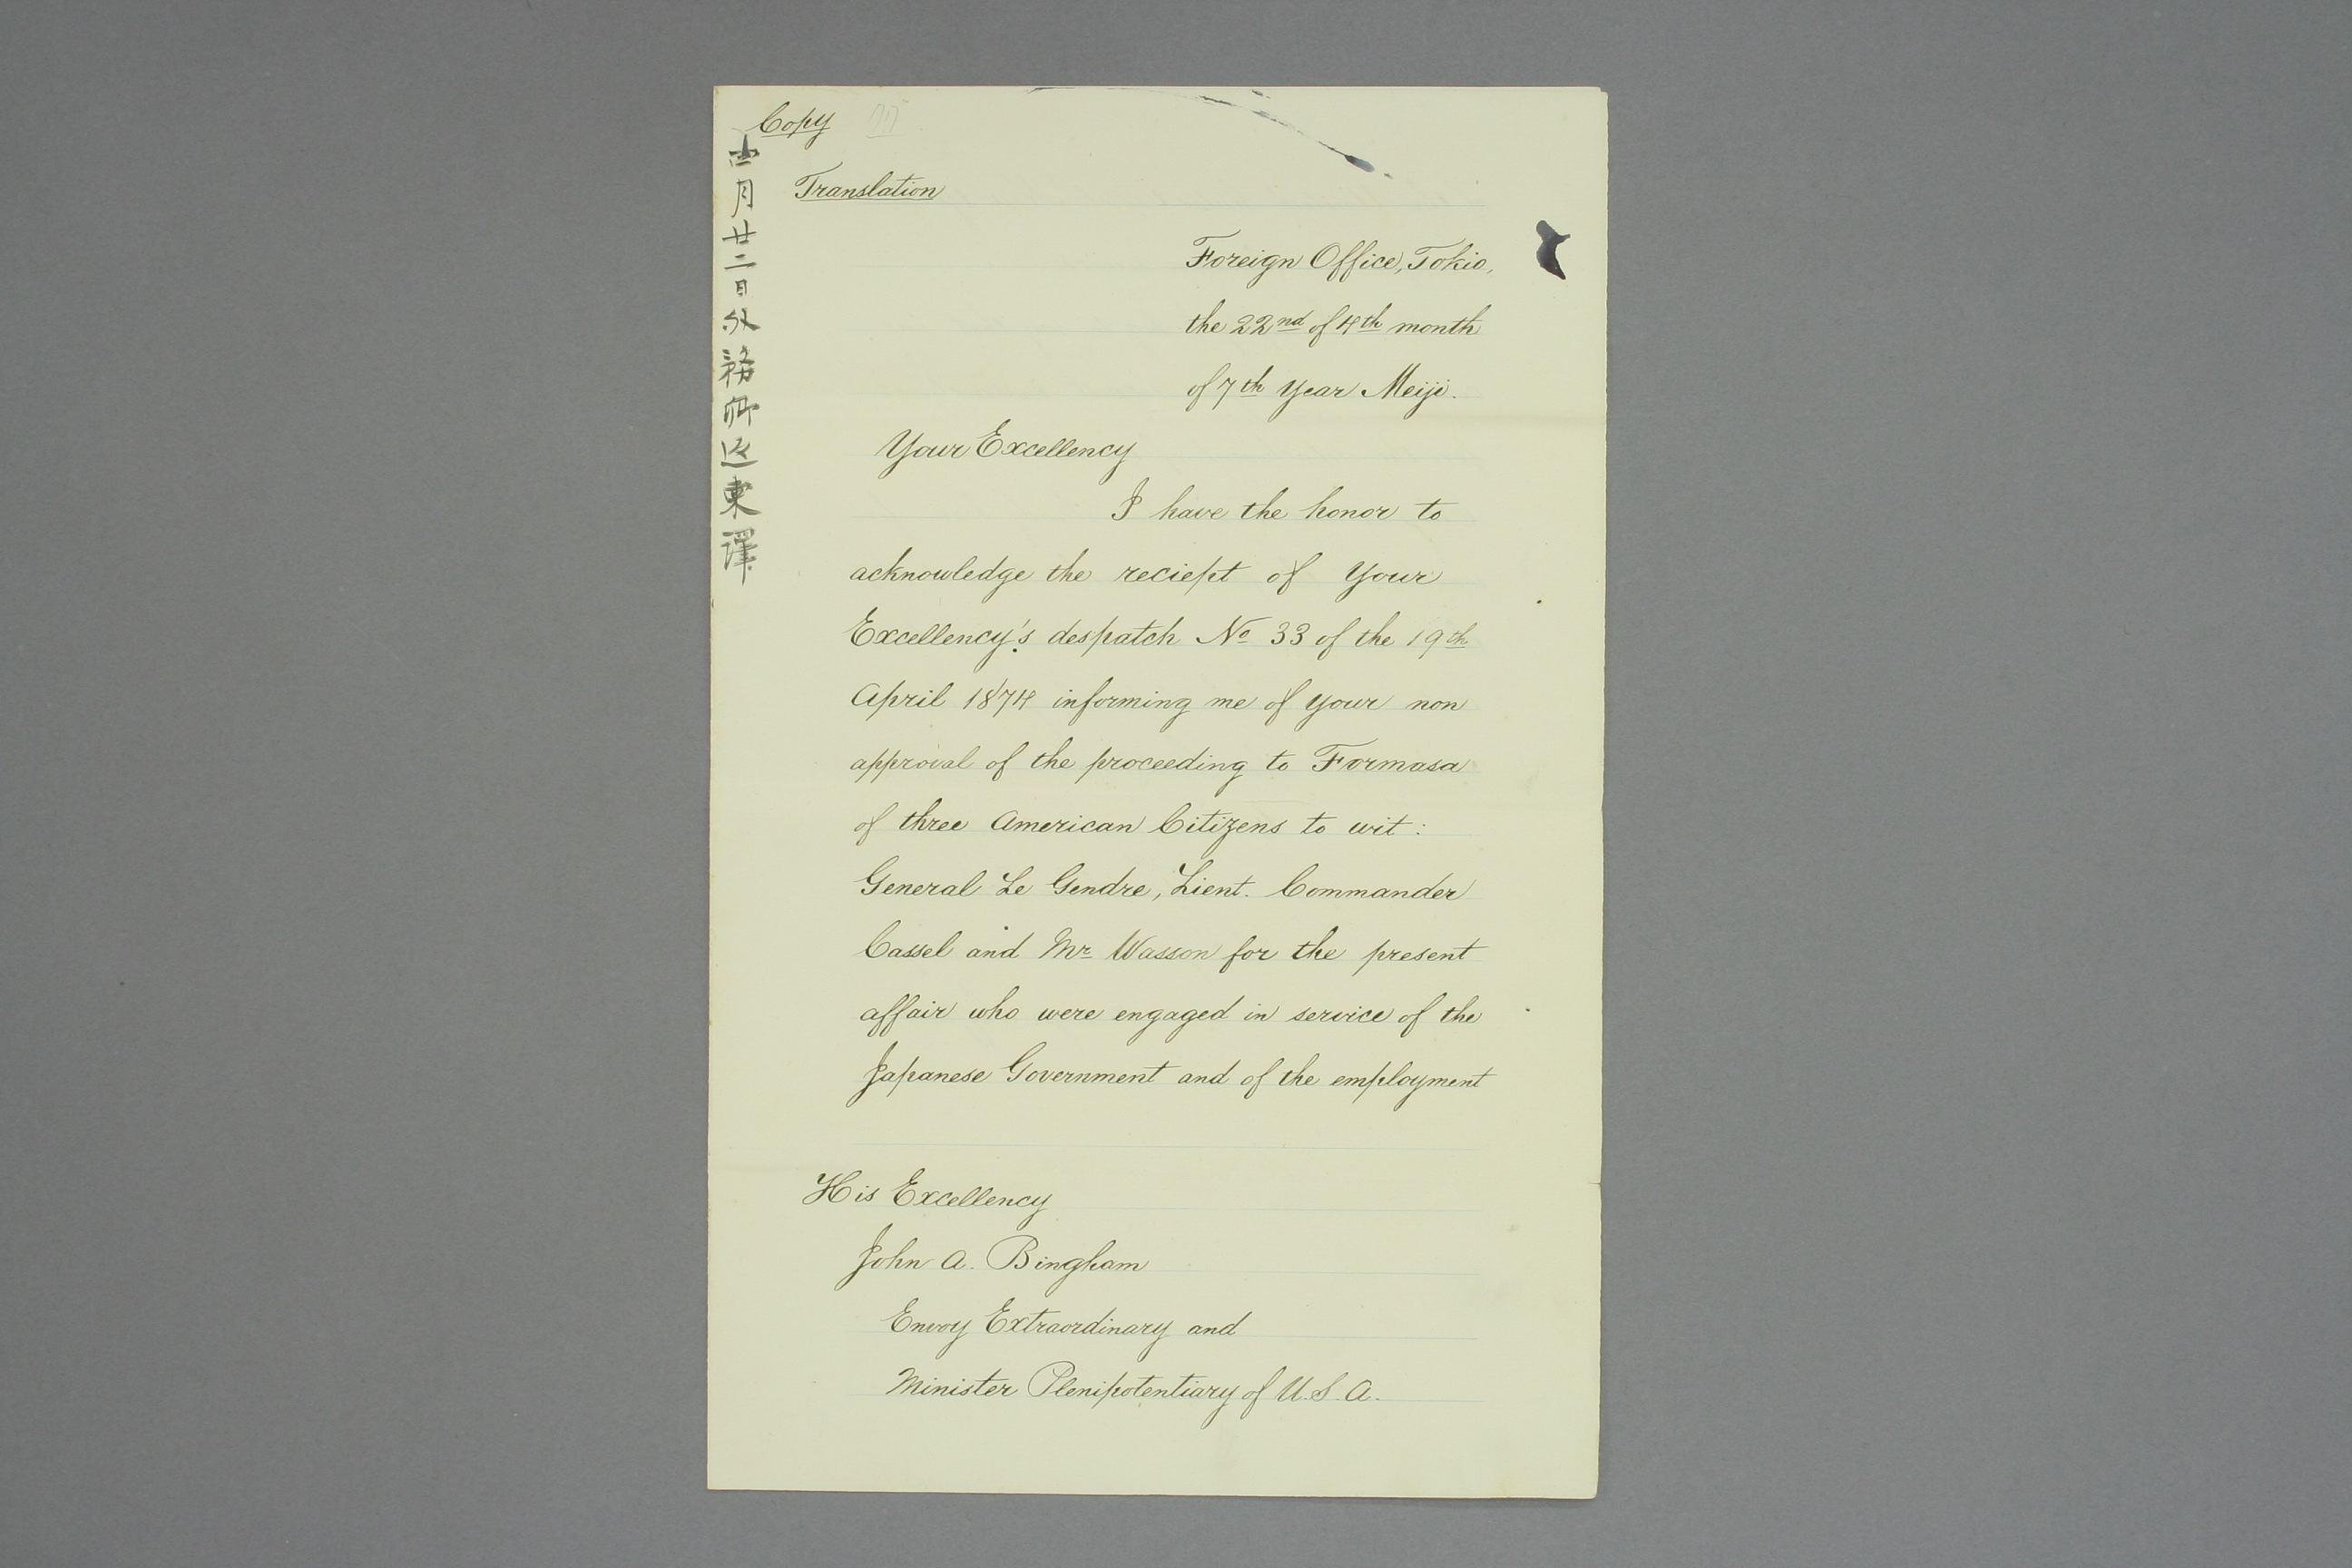 Copy
四月廿二日外務卿返柬譯
Translation
Foreign Office, Tokio,
the 22nd of 4th month
of 7th Year Meiji.
Your Excellency
I have the honor to
acknowledge the reciept of Your
Excellency's despatch No 33 of the 19th
April 1874 informing me of your non
approval of the proceeding to Formasa
of three American Citizens to wit:
General Le Gendre, Lieut. Commander
Cassel and Mr Wasson for the present
affair who were engaged in service of the
Japanese Government and of the employment
His Excellency
John A. Bingham
Envoy Extraordinary and
Minister Plenipotentiary of U.S.A.